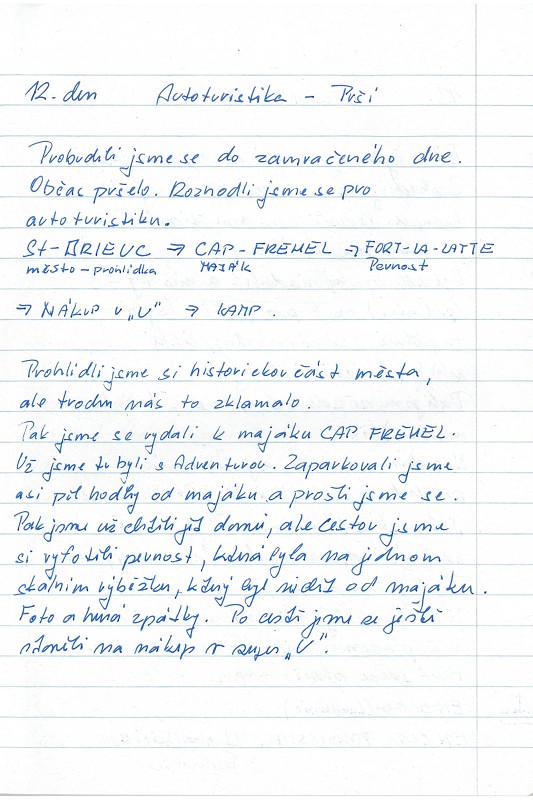 12. den Autoturistika - Prší
Probudili jsme se do zamračeného dne.
Občas pršelo. Rozhodli jsme se pro
autoturistiku.
St-BRIEUC → CAP-FREHEL → FORT-LA-LATTE
město - prohlídka MAJÁK Pevnost
→ NÁKUP v „U“ → KAMP.
Prohlídli jsme si historickou část města,
ale trochu nás to zklamalo.
Pak jsme se vydali k majáku CAP FREHEL.
Už jsme tu byli s Adventurou. Zaparkovali jsme
asi půl hodky od majáku a prošli jsme se.
Pak jsme už chtěli jít domů, ale cestou jsme
si vyfotili pevnost, která byla na jednom
skalním výběžku, který byl vidět od majáku.
Foto a hurá zpátky. Po cestě jsme se ještě
stavěli na nákup v super „U“.